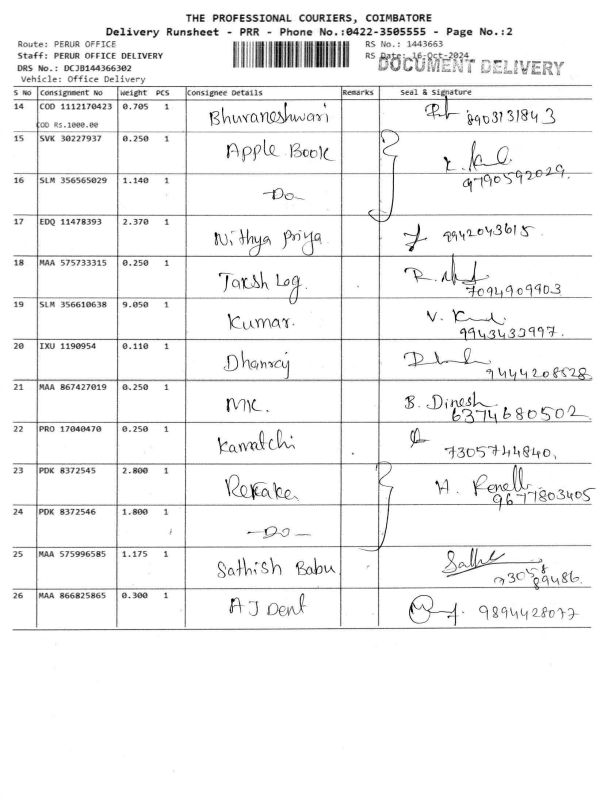 THE PROFESSIONAL COURIERS, COIMBATORE
Delivery Runsheet - PRR - Phone No.:0422-3505555 - Page No.:2
Route: PERUR OFFICE RS No.: 1443663
Staff: PERUR OFFICE DELIVERY RS Date: 16-Oct-2024
DOCUMENT DELIVERY
DRS No.: DCJB144366302
Vehicle: Office Delivery
S No Consignment No Weight PCS Consignee Details Remarks Seal & Signature
14 COD 1112170423 0.705 1 Bhuvaneshwari 8903131843
COD Rs.1000.00
15 SVK 30227937 0.250 1 Apple Book
9790592029.
16 SLM 356565029 1.140 1 -Do-
17 EDQ 11478393 2.370 1 Nithya Priya 9942043615.
18 MAA 575733315 0.250 1 Taksh Log.
7094909903
19 SLM 356610638 9.050 1 Kumar. V.
9943433997.
20 IXU 1190954 0.110 1 Dhanraj
9444208528
21 MAA 867427019 0.250 1 MK. B. Dinesh
6374680502
22 PRO 17040470 0.250 1 Kamatchi
7305744840.
23 PDK 8372545 2.800 1 H.
9677803405
24 PDK 8372546 1.800 1 -Do-
25 MAA 575996585 1.175 1 Sathish Babu.
89486.
26 MAA 866825865 0.300 1 AJ Dent 9894428077